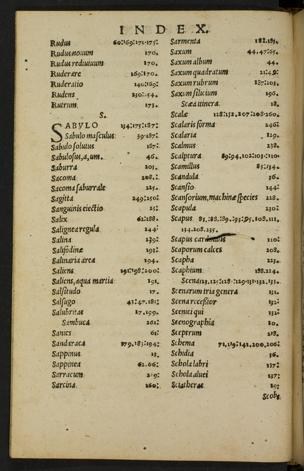 INDEX.
Rudus 60:169:171:175:
Rudus nouum 170.
Rudus rediuiuum 170.
Ruderare 169:170.
Ruderatio 140:169:
Rudens 250:54.
Rutrum. 175.
S.
SABVLO 154:175:187:
Sabulo masculus 39:187:
Sabulo solutus 187:
Sabulosus,a,um. 46.
Saburra 205.
Sacoma 208.
Sacoma saburrale 225.
Sagitta 249:250:
Sanguinis eiectio 25:
Salix 62:188.
Salignea regula 244:
Salina 239:
Salifodina 191:
Salinaria area 194.
Saliens 191:198:200:
Saliens, aqua martia 191.
Salsitudo 17.
Salsugo 41:47.181:
Salubritas 17.199.
Sambuca 262:
Sanies 68:
Sandaraca 179.183:194:
Sappinus 12.
Sappinea 62.06:
Sarracum 219:
Sarcina. 260:
Sarmenta 182.185.
Saxum 44.47:65.
Saxum album 44.
Saxum quadratum
Saxum rubrum 187:205.
Saxum silicium 196.
Scæa itinera. 18.
Scalæ 128:152.207:208:260.
Scalaris forma 246:
Scalaria 129.
Scalmus 238.
Scalptura 89:94,102:105:110:
Scamillus 85:154.
Scandula 36.
Scansio 244:
Scansorium, machinæ species 228.
Scapula 250:
Scapus 85,88.89.:93:95,108.111,
154.208.235.
Scapus cardinalis 110:
Scaporum calces 208.
Scapha 225.
Scaphium 188.214.
Scena
Scenarum tria genera 151.
Scena recessior 152:
Scenici qui 152:
Scenographia 10.
Scerperum 218.
Schema 71,119:142,200,206:
Schidia 36.
Schola labri 257:
Schola aluei 257:
257:
Scobs